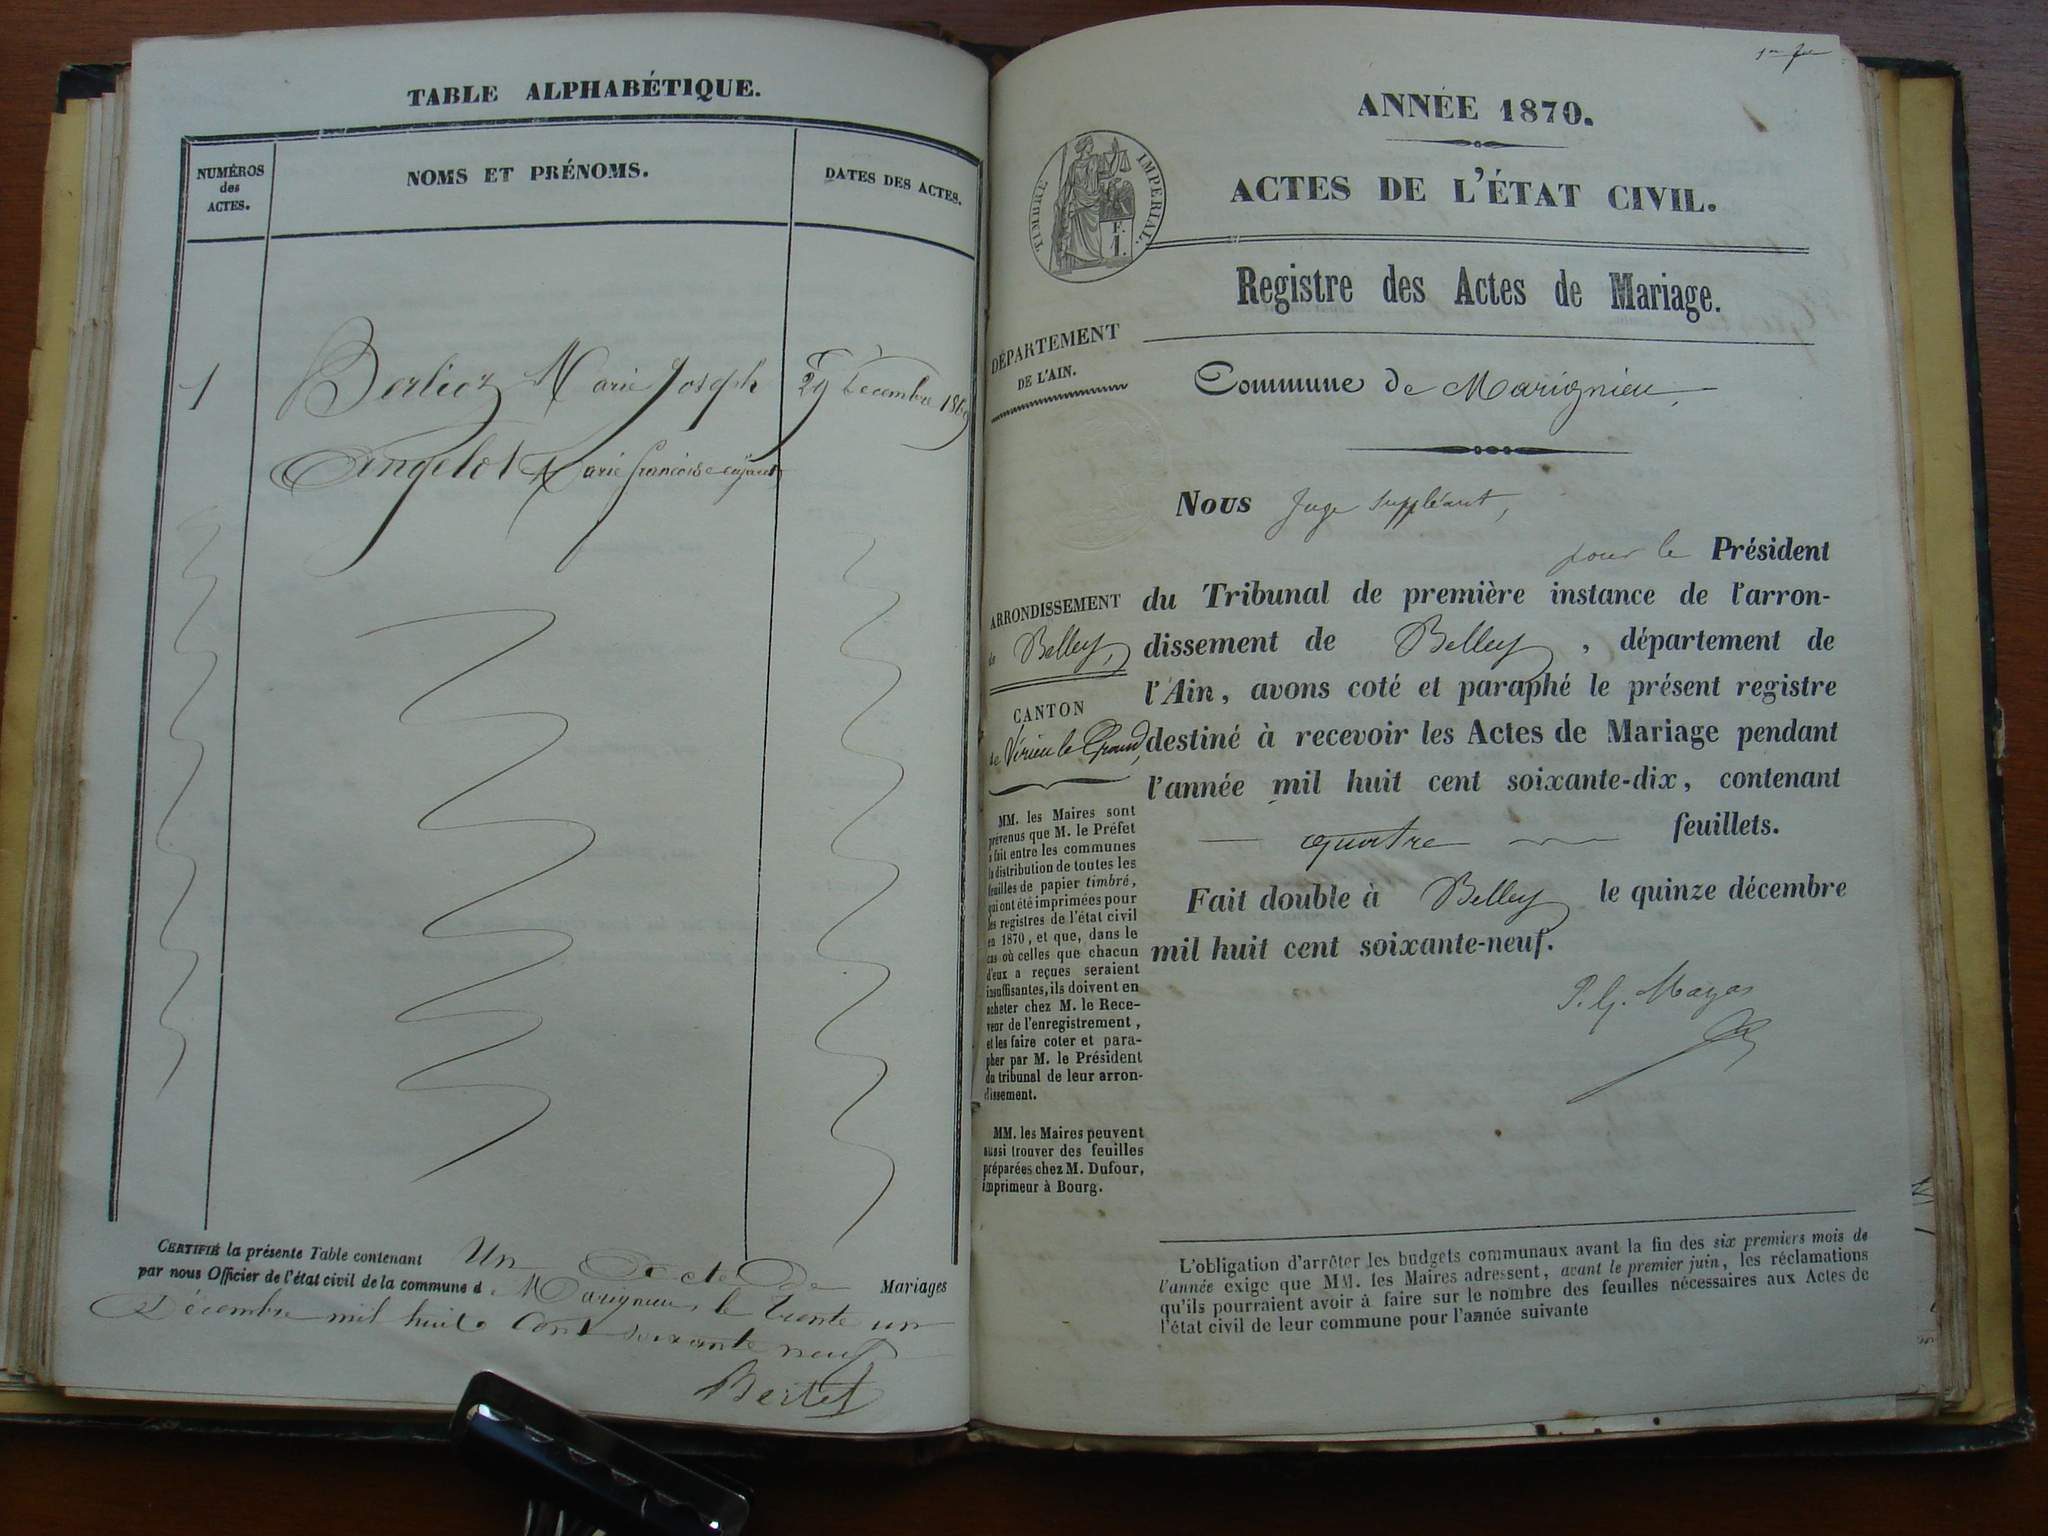 TABLE ALPHABÉTIQUE.
NUMÉROS des ACTES.
NOMS ET PRÉNOMS.
DATES DES ACTES.
1 Berlioz Marie Joseph 29 Décembre 1869
Angelot Marie françoise
CERTIFIÉ la présente Table contenant Un Acte De Mariages
par nous Officier de l'état civil de la commune d e Marignieu, le trente un
Décembre mil huit Cent soixante neuf
Bertet
ANNÉE 1870.
ACTES DE L'ÉTAT CIVIL.
TIMBRE IMPERIAL.
F.
1.
Registre des Actes de Mariage.
DÉPARTEMENT
DE L'AIN.
Commune de Marignieu,
Nous Juge Suppléant,
pour le Président
du Tribunal de première instance de l'arron-
dissement de Belley, département de
l'Ain, avons coté et paraphé le présent registre
destiné à recevoir les Actes de Mariage pendant
l'année mil huit cent soixante-dix, contenant
quatre feuillets.
Fait double à Belley le quinze décembre
mil huit cent soixante-neuf.
P. G. Mayas
ARRONDISSEMENT
de Belley,
CANTON
de Virieu le Grand,
MM. les Maires sont
prévenus que M. le Préfet
a fait entre les communes
la distribution de toutes les
feuilles de papier timbré,
qui ont été imprimées pour
les registres de l'état civil
en 1870, et que, dans le
cas où celles que chacun
d'eux a reçues seraient
insuffisantes, ils doivent en
acheter chez M. le Rece-
veur de l'enregistrement,
et les faire coter et para-
pher par M. le Président
du tribunal de leur arron-
dissement.
MM. les Maires peuvent
aussi trouver des feuilles
préparées chez M. Dufour,
imprimeur à Bourg.
L'obligation d'arrêter les budgets communaux avant la fin des six premiers mois de
l'année exige que MM. les Maires adressent, avant le premier juin, les réclamations
qu'ils pourraient avoir à faire sur le nombre des feuilles nécessaires aux Actes de
l'état civil de leur commune pour l'année suivante